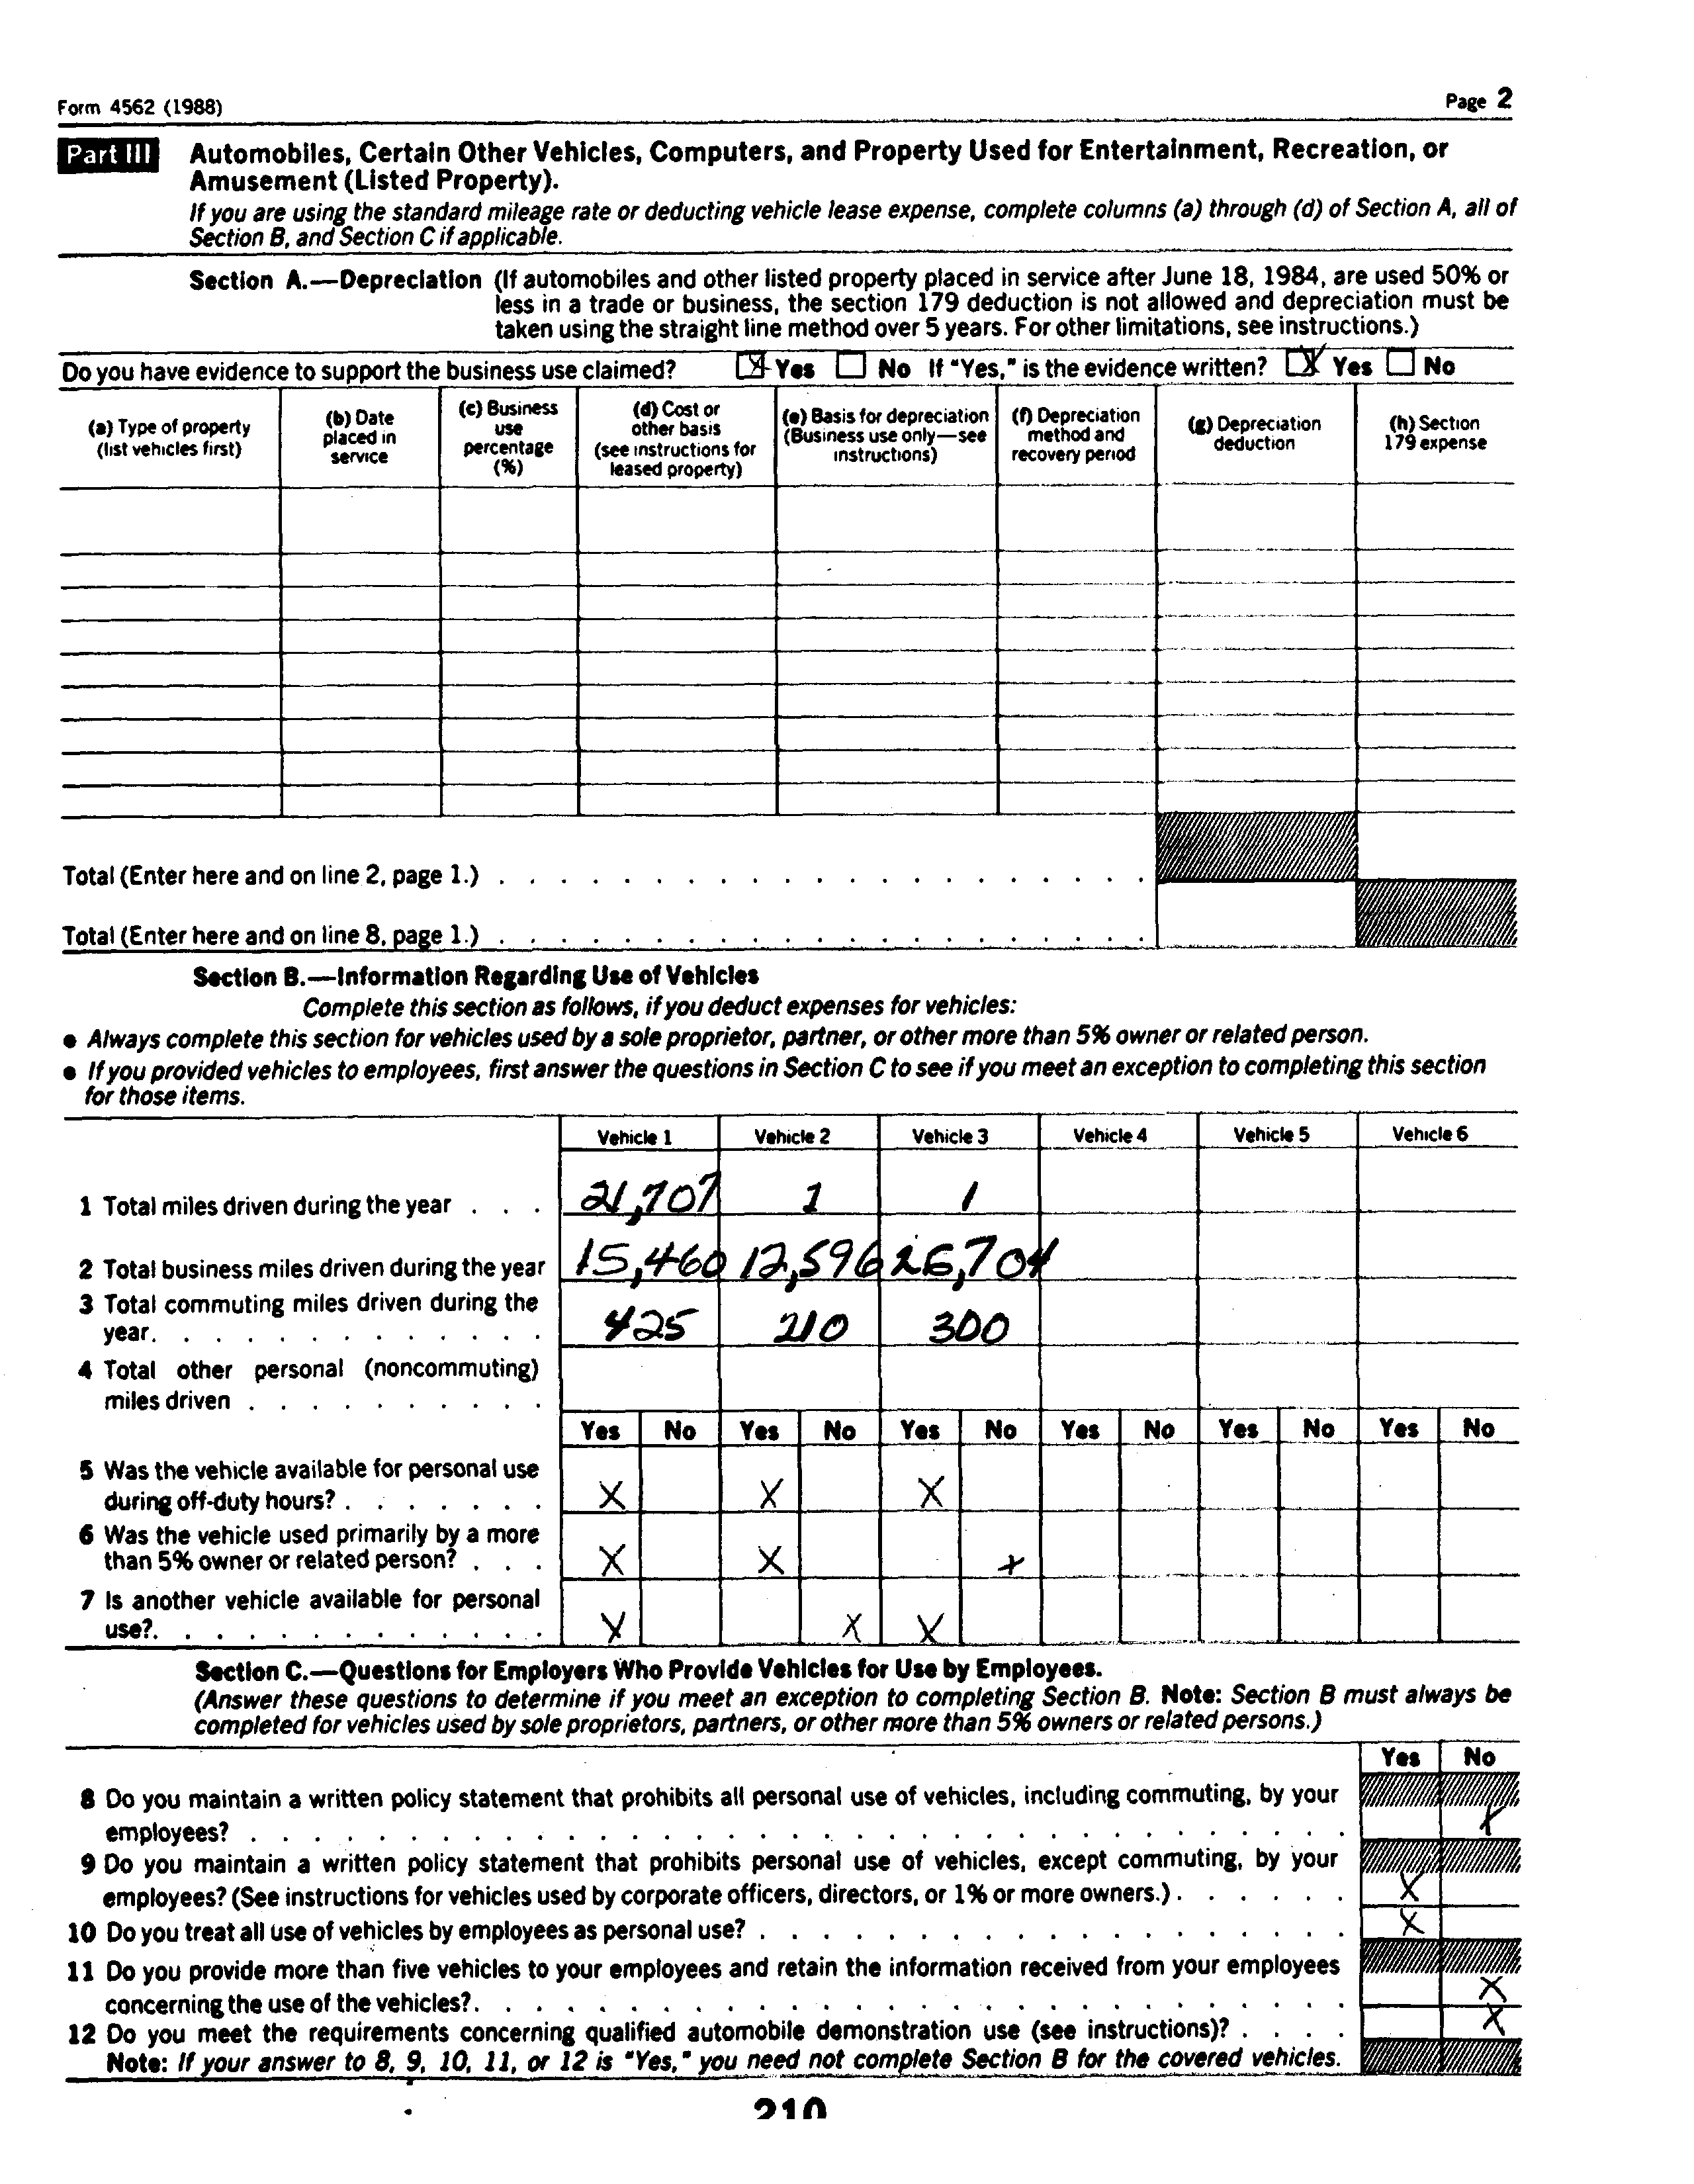 Form 4562 (1988)
Page 2
Part III
Automobiles, Certain Other Vehicles, Computers, and Property Used for Entertainment, Recreation, or
Amusement (Listed Property).
If you are using the standard mileage rate or deducting vehicle lease expense, complete columns (a) through (d) of Section A, all of
Section B, and Section C if applicable.
Section A.—Depreciation (If automobiles and other listed property placed in service after June 18, 1984, are used 50% or
less in a trade or business, the section 179 deduction is not allowed and depreciation must be
taken using the straight line method over 5 years. For other limitations, see instructions.)
Do you have evidence to support the business use claimed? X Yes No If "Yes," is the evidence written? X Yes No
(a) Type of property
(list vehicles first)
(b) Date
placed in
service
(c) Business
use
percentage
(%)
(d) Cost or
other basis
(see instructions for
leased property)
(e) Basis for depreciation
(Business use only—see
instructions)
(f) Depreciation
method and
recovery period
(g) Depreciation
deduction
(h) Section
179 expense
Total (Enter here and on line 2, page 1.) . . . . . . . . . . . . . . . . . . . . .
Total (Enter here and on line 8, page 1.) . . . . . . . . . . . . . . . . . . . . .
Section B.—Information Regarding Use of Vehicles
Complete this section as follows, if you deduct expenses for vehicles:
● Always complete this section for vehicles used by a sole proprietor, partner, or other more than 5% owner or related person.
● If you provided vehicles to employees, first answer the questions in Section C to see if you meet an exception to completing this section
for those items.
Vehicle 1 Vehicle 2 Vehicle 3 Vehicle 4 Vehicle 5 Vehicle 6
1 Total miles driven during the year . . . 21,707 1 1
2 Total business miles driven during the year 15,460 12,596 26,704
3 Total commuting miles driven during the
year. . . . . . . . . . . . . 425 210 300
4 Total other personal (noncommuting)
miles driven . . . . . . . . . .
Yes No Yes No Yes No Yes No Yes No Yes No
5 Was the vehicle available for personal use
during off-duty hours? . . . . . . . X X X
6 Was the vehicle used primarily by a more
than 5% owner or related person? . . . X X X
7 Is another vehicle available for personal
use?. . . . . . . . . . . . . X X X
Section C.—Questions for Employers Who Provide Vehicles for Use by Employees.
(Answer these questions to determine if you meet an exception to completing Section B. Note: Section B must always be
completed for vehicles used by sole proprietors, partners, or other more than 5% owners or related persons.)
Yes No
8 Do you maintain a written policy statement that prohibits all personal use of vehicles, including commuting, by your
employees? . . . . . . . . . . . . . . . . . . . . . . . . . . . . . . . . . . . X
9 Do you maintain a written policy statement that prohibits personal use of vehicles, except commuting, by your
employees? (See instructions for vehicles used by corporate officers, directors, or 1% or more owners.) . . . . . . X
10 Do you treat all use of vehicles by employees as personal use? . . . . . . . . . . . . . . . . . . . X
11 Do you provide more than five vehicles to your employees and retain the information received from your employees
concerning the use of the vehicles?. . . . . . . . . . . . . . . . . . . . . . . . . . . . X
12 Do you meet the requirements concerning qualified automobile demonstration use (see instructions)? . . . . X
Note: If your answer to 8, 9, 10, 11, or 12 is "Yes," you need not complete Section B for the covered vehicles.
210